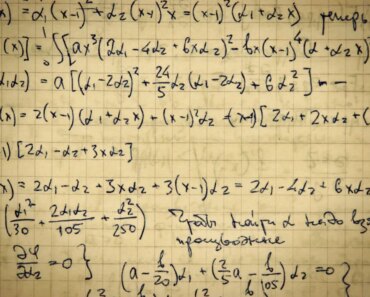 ) = α₁(x-1)² + α₂(x-1)²x = (x-1)²(α₁+α₂x) теперь
(x)] = ∫₀¹ [ax³(2α₁-4α₂+6xα₂)²-bx(x-1)⁴(α+α₂x)
α₁α₂) = a[(α₁-2α₂)²+24/5α₂(α₁-2α₂)+6α₂²] - -
(x) = 2(x-1)(α₁+α₂x)+(x-1)²α₂ = (x-1)[2α₁+2xα₂+(
1)[2α₁-α₂+3xα₂]
x) = 2α₁-α₂+3xα₂+3(x-1)α₂ = 2α₁-4α₂+6xα₂
(α₁²/30+2α₁α₂/105+α₂²/250) Чтобы найти α надо
∂φ/∂α₂=0} (a-b/30)α₁+(2/5a-b/105)α₂=0}